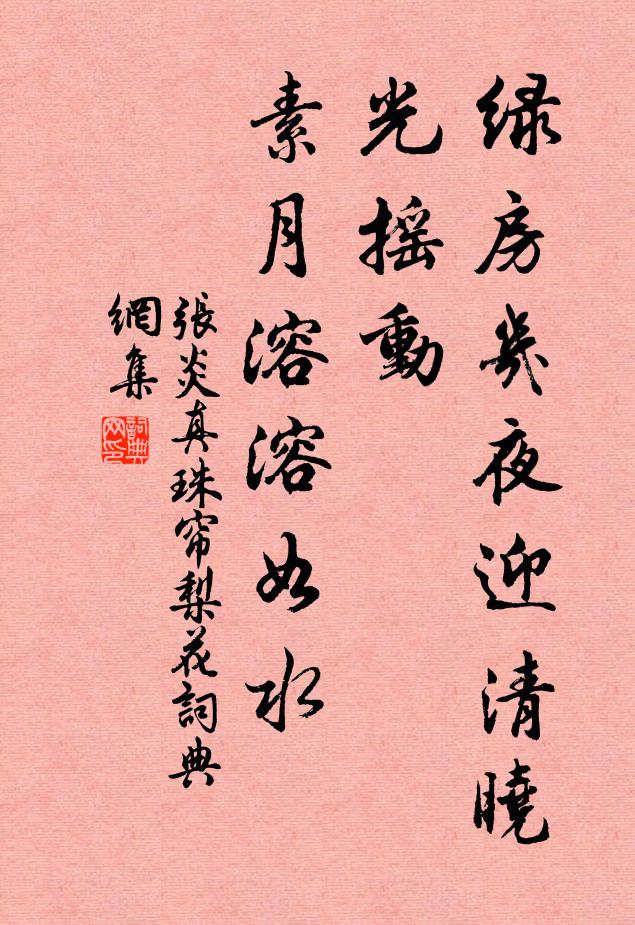 绿房幾夜迎清曉
光摇動
素月溶溶如水
張炎真珠帘梨花詞典
網集
詞典
网印